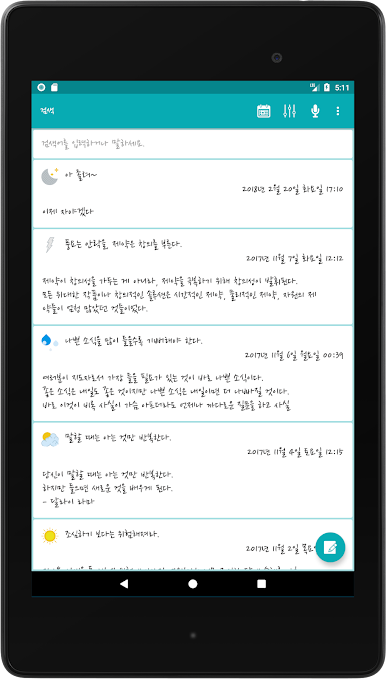 5:11
검색
검색어를 입력하거나 말하세요.
아 졸려~
2018년 2월 20일 화요일 17:10
이제 자야겠다
풍요는 안락을, 제약은 창의를 부른다.
2017년 11월 7일 화요일 12:12
제약이 창의성을 가두는 게 아니라, 제약을 극복하기 위해 창의성이 발휘된다.
모든 위대한 작품이나 창의적인 솔루션은 시간적인 제약, 물리적인 제약, 자원의 제
약들이 엄청 많았던 것들이었다.
나쁜 소식을 많이 들을수록 기뻐해야 한다.
2017년 11월 6일 월요일 00:39
여러분이 지도자로서 가장 들을 필요가 있는 것이 바로 나쁜 소식이다.
좋은 소식은 내일도 좋은 것이지만 나쁜 소식은 내일이면 더 나빠질 것이다.
바로 이것이 비록 사실이 가슴 아프더라도 언제나 까다로운 질문을 하고 사실
말할 때는 아는 것만 반복한다.
2017년 11월 4일 토요일 12:15
당신이 말할 때는 아는 것만 반복한다.
하지만 들으면 새로운 것을 배우게 된다.
- 달라이 라마
조심하기 보다는 위험해져라.
2017년 11월 2일 목요